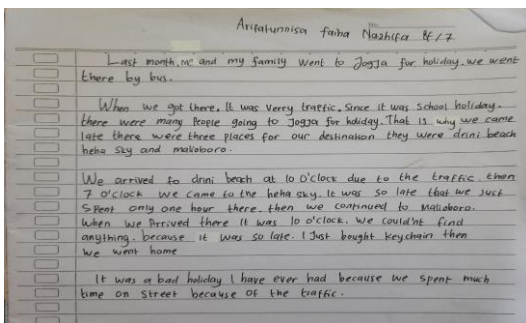 Arifatunnisa faiha Nazhifa 8f/7
Last month, me and my family went to Jogja for holiday. we went
there by bus.
When we got there, It was verry traffic. Since it was school holiday.
there were many people going to Jogja for holiday. That is why we came
late there were three places for our destination they were drini beach
heha sky and malioboro.
We arrived to drini beach at 10 O'clock due to the traffic. then
7 o'clock we came to the heha sky. It was so late that we Just
Spent only one hour there. then we continued to Malioboro.
When we Arrived there It was 10 o'clock. We could'nt find
anything. because it was so late. I Just bought keychain then
we went home
It was a bad holiday I have ever had because we spent much
time on street because of the traffic.